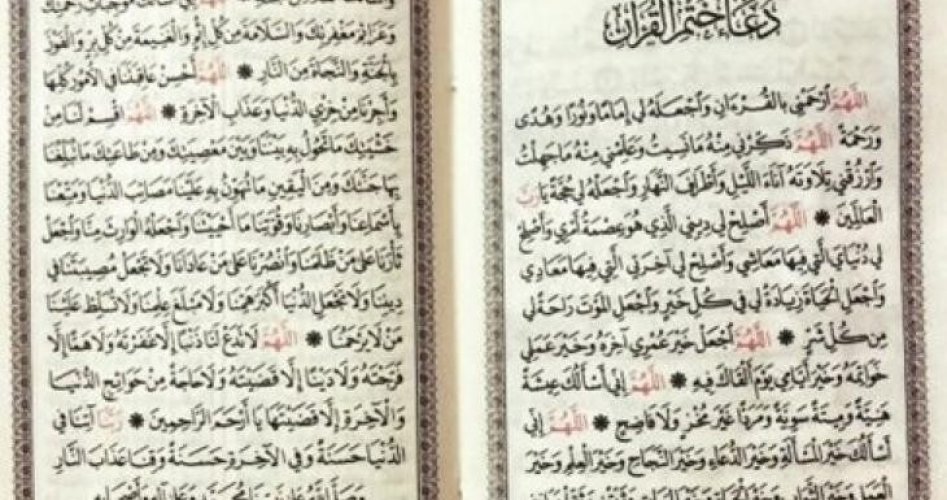 دُعَاءُ خَتْمِ الْقُرْآنِ
اللَّهُمَّ ارْحَمْنِي بِالْقُرْءَانِ وَاجْعَلْهُ لِي إِمَامًا وَنُورًا وَهُدًى
وَرَحْمَةً اللَّهُمَّ ذَكِّرْنِي مِنْهُ مَا نَسِيتُ وَعَلِّمْنِي مِنْهُ مَا جَهِلْتُ
وَارْزُقْنِي تِلَاوَتَهُ آنَاءَ اللَّيْلِ وَأَطْرَافَ النَّهَارِ وَاجْعَلْهُ لِي حُجَّةً يَارَبَّ
الْعَالَمِينَ * اللَّهُمَّ أَصْلِحْ لِي دِينِي الَّذِي هُوَ عِصْمَةُ أَمْرِي وَأَصْلِحْ
لِي دُنْيَايَ الَّتِي فِيهَا مَعَاشِي وَأَصْلِحْ لِي آخِرَتِي الَّتِي فِيهَا مَعَادِي
وَاجْعَلِ الْحَيَاةَ زِيَادَةً لِي فِي كُلِّ خَيْرٍ وَاجْعَلِ الْمَوْتَ رَاحَةً لِي
مِن كُلِّ شَرٍّ * اللَّهُمَّ اجْعَلْ خَيْرَ عُمْرِي آخِرَهُ وَخَيْرَ عَمَلِي
خَوَاتِمَهُ وَخَيْرَ أَيَّامِي يَوْمَ أَلْقَاكَ فِيهِ * اللَّهُمَّ إِنِّي أَسْأَلُكَ عِيشَةً
هَنِيَّةً وَمِيتَةً سَوِيَّةً وَمَرَدًّا غَيْرَ مُخْزٍ وَلَا فَاضِحٍ * اللَّهُمَّ إِنِّي
أَسْأَلُكَ خَيْرَ الْمَسْأَلَةِ وَخَيْرَ الدُّعَاءِ وَخَيْرَ النَّجَاحِ وَخَيْرَ الْعِلْمِ وَخَيْرَ
وَعَزَائِمَ مَغْفِرَتِكَ وَالسَّلَامَةَ مِن كُلِّ إِثْمٍ وَالْغَنِيمَةَ مِن كُلِّ بِرٍّ وَالْفَوْزَ
بِالْجَنَّةِ وَالنَّجَاةَ مِنَ النَّارِ * اللَّهُمَّ أَحْسِنْ عَاقِبَتَنَا فِي الْأُمُورِ كُلِّهَا
وَأَجِرْنَا مِنْ خِزْيِ الدُّنْيَا وَعَذَابِ الْآخِرَةِ * اللَّهُمَّ اقْسِمْ لَنَا مِنْ
خَشْيَتِكَ مَا تَحُولُ بِهِ بَيْنَنَا وَبَيْنَ مَعْصِيَتِكَ وَمِنْ طَاعَتِكَ مَا تُبَلِّغُنَا
بِهَا جَنَّتَكَ وَمِنَ الْيَقِينِ مَا تُهَوِّنُ بِهِ عَلَيْنَا مَصَائِبَ الدُّنْيَا وَمَتِّعْنَا
بِأَسْمَاعِنَا وَأَبْصَارِنَا وَقُوَّتِنَا مَا أَحْيَيْتَنَا وَاجْعَلْهُ الْوَارِثَ مِنَّا وَاجْعَلْ
ثَأْرَنَا عَلَى مَنْ ظَلَمَنَا وَانْصُرْنَا عَلَى مَنْ عَادَانَا وَلَا تَجْعَلْ مُصِيبَتَنَا فِي
دِينِنَا وَلَا تَجْعَلِ الدُّنْيَا أَكْبَرَ هَمِّنَا وَلَا مَبْلَغَ عِلْمِنَا وَلَا تُسَلِّطْ عَلَيْنَا
مَنْ لَا يَرْحَمُنَا * اللَّهُمَّ لَا تَدَعْ لَنَا ذَنْبًا إِلَّا غَفَرْتَهُ وَلَا هَمًّا إِلَّا
فَرَّجْتَهُ وَلَا دَيْنًا إِلَّا قَضَيْتَهُ وَلَا حَاجَةً مِنْ حَوَائِجِ الدُّنْيَا
وَالْآخِرَةِ إِلَّا قَضَيْتَهَا يَا أَرْحَمَ الرَّاحِمِينَ * رَبَّنَا آتِنَا فِي
الدُّنْيَا حَسَنَةً وَفِي الْآخِرَةِ حَسَنَةً وَقِنَا عَذَابَ النَّارِ